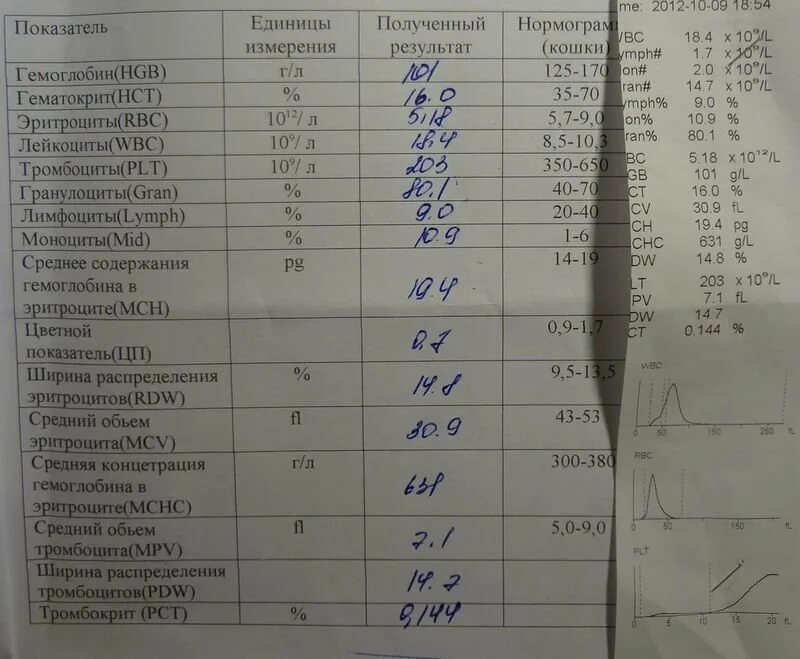 Показатель Единицы измерения Полученный результат Нормограм (кошки)
Гемоглобин(HGB) г/л 101 125-170
Гематокрит(HCT) % 16.0 35-70
Эритроциты(RBC) 10¹²/ л 5,18 5,7-9,0
Лейкоциты(WBC) 10⁹/ л 18.4 8,5-10,3
Тромбоциты(PLT) 10⁹/ л 203 350-650
Гранулоциты(Gran) % 80.1 40-70
Лимфоциты(Lymph) % 9.0 20-40
Моноциты(Mid) % 10.9 1-6
Среднее содержания pg 14-19
гемоглобина в
эритроците(MCH) 19.4
Цветной 0,9-1,7
показатель(ЦП) 0,7
Ширина распределения % 9,5-13,5
эритроцитов(RDW) 14.8
Средний обьем fl 43-53
эритроцита(MCV) 30.9
Средняя концетрация г/л 300-380
гемоглобина в
эритроците(MCHC) 631
Средний обьем fl 5,0-9,0
тромбоцита(MPV) 7.1
Ширина распределения
тромбоцитов(PDW) 14.7
Тромбокрит (PCT) % 0,144
me: 2012-10-09 18:54
/BC 18.4 x 10⁹/L
ymph# 1.7 x 10⁹/L
on# 2.0 x 10⁹/L
ran# 14.7 x 10⁹/L
ymph% 9.0 %
on% 10.9 %
ran% 80.1 %
BC 5.18 x 10¹²/L
GB 101 g/L
CT 16.0 %
CV 30.9 fL
CH 19.4 pg
CHC 631 g/L
DW 14.8 %
LT 203 x 10⁹/L
PV 7.1 fL
DW 14.7
CT 0.144 %
WBC
0 50 150 250 fL
RBC
0 50 150 fL
PLT
0 5 10 15 20 fL